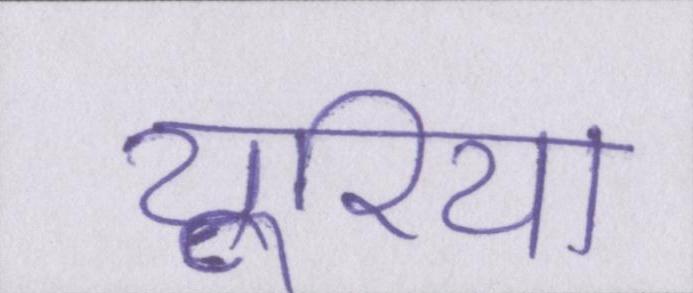 यूरिया